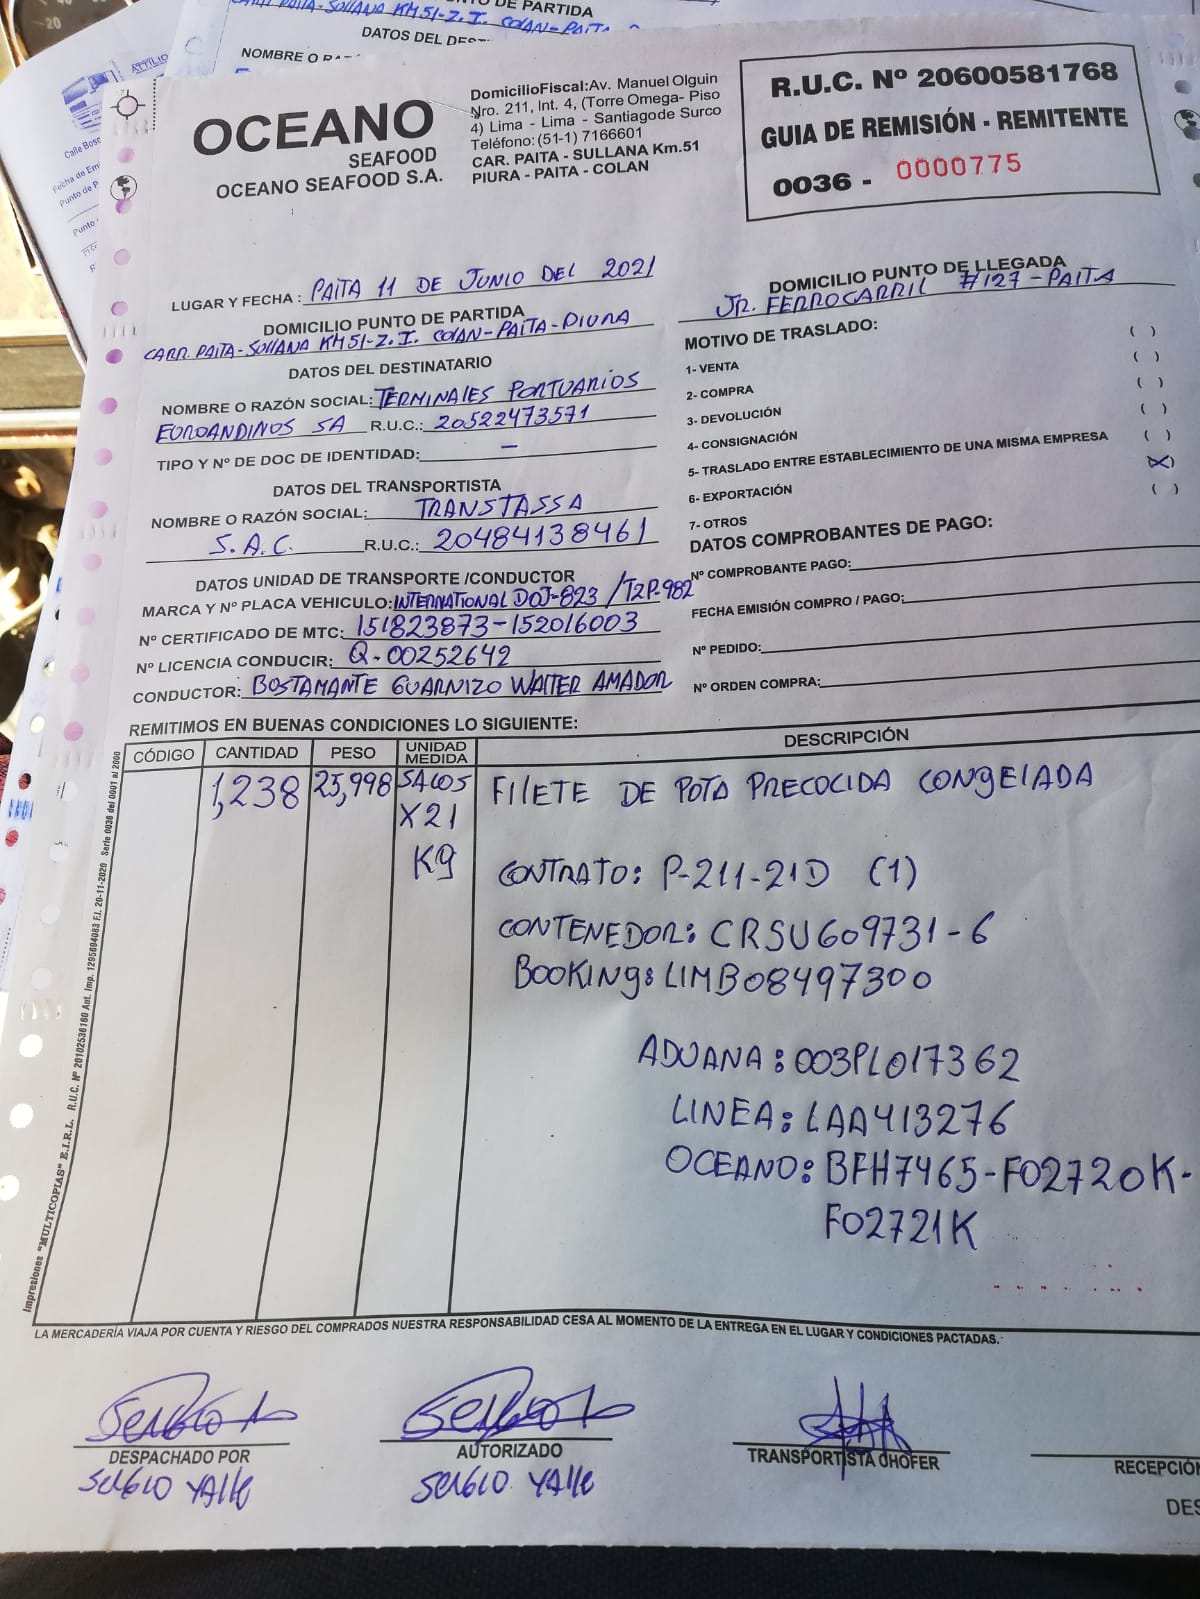 CARR. PAITA-SULLANA KM51-Z.I. COLAN-PAITA
DE PARTIDA
DATOS DEL
NOMBRE O
ATTILIO
Calle
Fecha de Em
Punto de P
Punto
OCEANO
SEAFOOD
OCEANO SEAFOOD S.A.
DomicilioFiscal:Av. Manuel Olguin
Nro. 211, Int. 4, (Torre Omega- Piso
4) Lima - Lima - Santiagode Surco
Teléfono:(51-1) 7166601
CAR. PAITA - SULLANA Km.51
PIURA - PAITA - COLAN
R.U.C. Nº 20600581768
GUIA DE REMISIÓN - REMITENTE
0036 - 0000775
LUGAR Y FECHA : PAITA 11 DE JUNIO DEL 2021
DOMICILIO PUNTO DE PARTIDA
CARR. PAITA-SULLANA KM51-Z.I. COLAN-PAITA-PIURA
DATOS DEL DESTINATARIO
NOMBRE O RAZÓN SOCIAL: TERMINALES PORTUARIOS
EUROANDINOS SA R.U.C.: 20522473571
TIPO Y Nº DE DOC DE IDENTIDAD: -
DATOS DEL TRANSPORTISTA
NOMBRE O RAZÓN SOCIAL: TRANSTASSA
S.A.C. R.U.C.: 20484138461
DATOS UNIDAD DE TRANSPORTE /CONDUCTOR
MARCA Y Nº PLACA VEHICULO: INTERNATIONAL DOJ-823 / T2P-982
Nº CERTIFICADO DE MTC: 151823873-152016003
Nº LICENCIA CONDUCIR: Q-00252642
CONDUCTOR: BUSTAMANTE GUARNIZO WALTER AMADOR
DOMICILIO PUNTO DE LLEGADA
JR. FERROCARRIL #127-PAITA
MOTIVO DE TRASLADO:
( )
1- VENTA ( )
2- COMPRA ( )
3- DEVOLUCIÓN ( )
4- CONSIGNACIÓN ( )
5- TRASLADO ENTRE ESTABLECIMIENTO DE UNA MISMA EMPRESA (X)
6- EXPORTACIÓN ( )
7- OTROS
DATOS COMPROBANTES DE PAGO:
Nº COMPROBANTE PAGO:
FECHA EMISIÓN COMPRO / PAGO:
Nº PEDIDO:
Nº ORDEN COMPRA:
REMITIMOS EN BUENAS CONDICIONES LO SIGUIENTE:
CÓDIGO CANTIDAD PESO UNIDAD MEDIDA DESCRIPCIÓN
1,238 25,998 SACOS FILETE DE POTA PRECOCIDA CONGELADA
X21
KG
CONTRATO: P-211-21D (1)
CONTENEDOR: CRSU609731-6
BOOKING: LIMB08497300
ADUANA: 003PL017362
LINEA: LAA413276
OCEANO: BFH7465-F02720K-
F02721K
Impresiones "MULTICOPIAS" E.I.R.L. R.U.C. Nº 20102536160 Aut. Imp. 1295694083 F.I. 20-11-2020 Serie 0036 del 0001 al 2000
LA MERCADERÍA VIAJA POR CUENTA Y RIESGO DEL COMPRADOS NUESTRA RESPONSABILIDAD CESA AL MOMENTO DE LA ENTREGA EN EL LUGAR Y CONDICIONES PACTADAS.
DESPACHADO POR
SERGIO YALLE
AUTORIZADO
SERGIO YALLE
TRANSPORTISTA CHOFER
RECEPCIÓN
DES